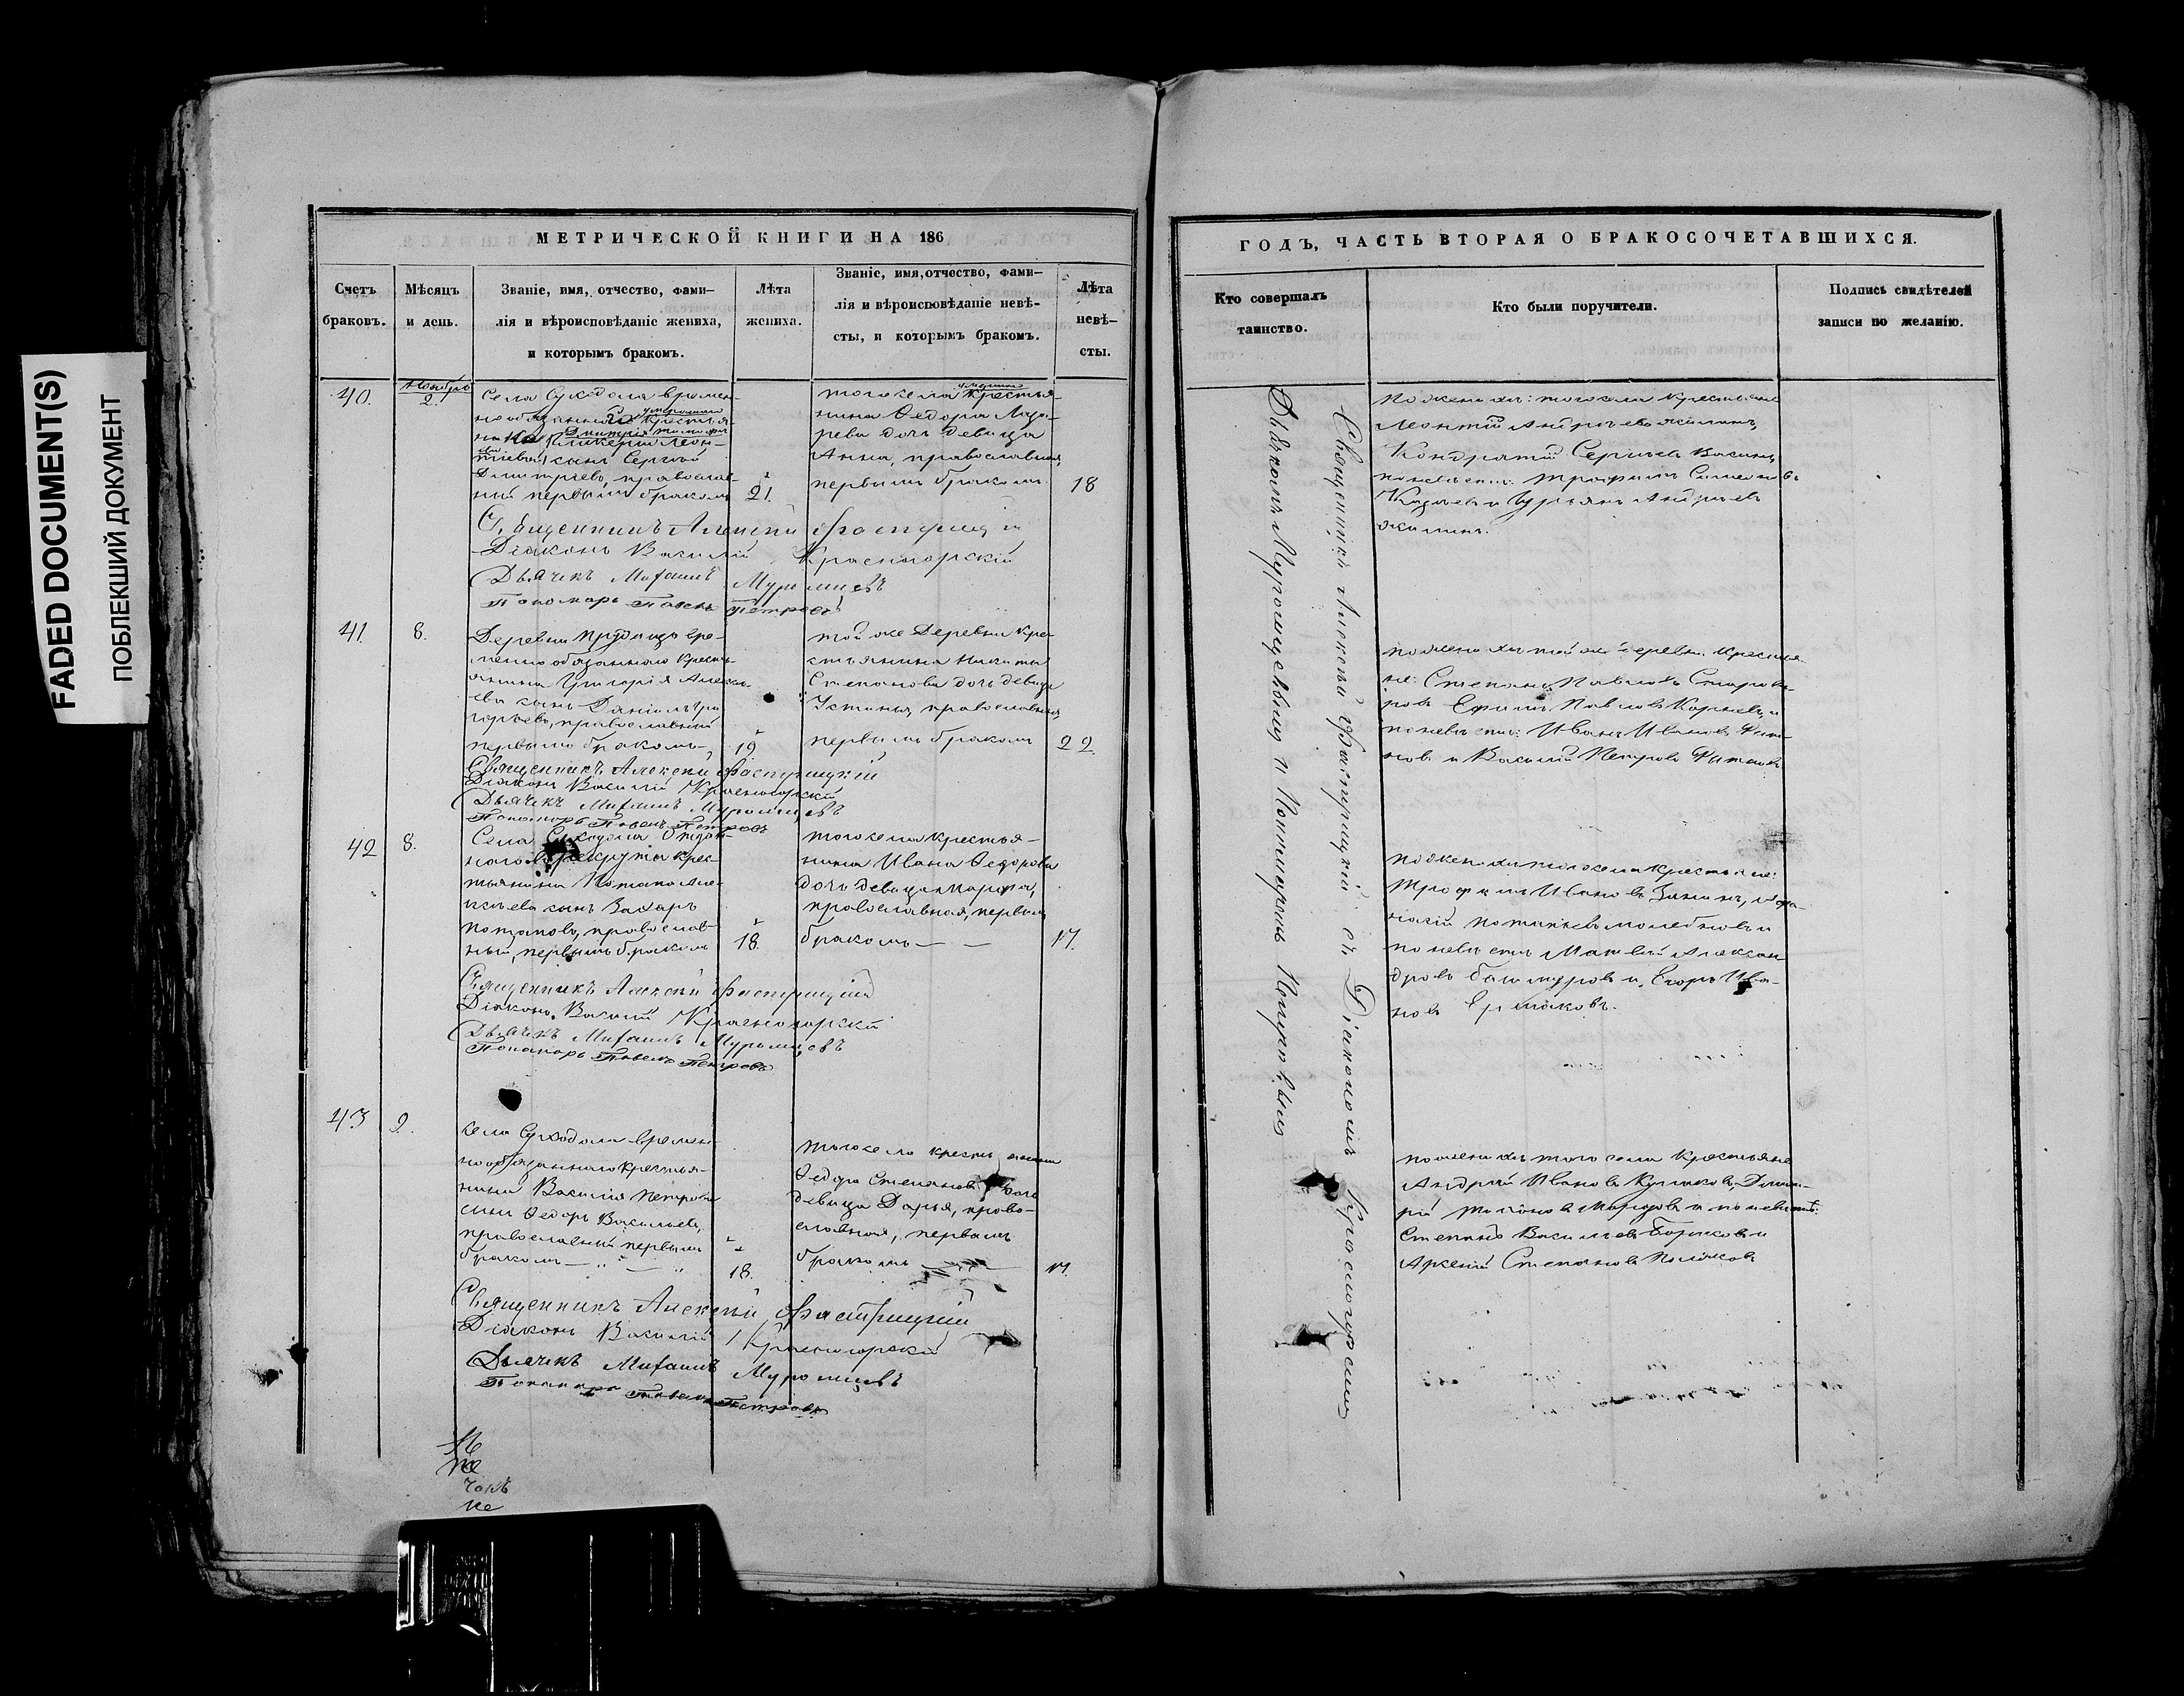 FADED DOCUMENT(S)
ПОБЛЕКШИЙ ДОКУМЕНТ
МЕТРИЧЕСКОЙ КНИГИ НА 186
Счетъ браковъ.
Мѣсяцъ и день.
Званіе, имя, отчество, фами-
лія и вѣроисповѣданіе жениха,
и которымъ бракомъ.
Лѣта
жениха.
Званіе, имя, отчество, фами-
лія и вѣроисповѣданіе невѣ-
сты, и которымъ бракомъ.
Лѣта
невѣ-
сты.
40.
Ноябрь
2.
Села Суходола времен-
но обязаннаго крестья-
сынъ Сергѣй
Димитріевъ, православ-
ный первымъ бракомъ
21.
тогоже села умершаго крестья-
нина Ѳедора Лаза-
рева дочь девица
Анна, православная,
первымъ бракомъ
18
Священникъ Алексѣй
Діаконъ Василій Красногорскій
Дьячекъ Михаилъ Муромцевъ
Пономарь Павелъ Петровъ
41.
8.
Деревни Прудищъ вре-
менно обязаннаго кресть-
янина Григорія Алексѣ-
ева сынъ Даніилъ Гри
горьевъ, православный
первымъ бракомъ
19
той же деревни кре
стьянина Никиты
Степанова дочь девица
Устинья, православная,
первымъ бракомъ
22.
Священникъ Алексѣй
Діаконъ Василій Красногорскій
Дьячекъ Михаилъ Муромцевъ
Пономарь Павелъ Петровъ
42
8.
Села Суходола отдан-
наго в рекруты крес-
тьянина Потапа Але-
ксѣева сынъ Захаръ
Потаповъ, православ-
ный, первымъ бракомъ
18.
тогоже села крестья-
нина Ивана Ѳедорова
дочь девица Марфа,
православная, первымъ
бракомъ
17.
Священникъ Алексѣй
Діаконъ Василій Красногорскій
Дьячекъ Михаилъ Муромцевъ
Пономарь Павелъ Петровъ
43
9.
села Суходола времен
но обязаннаго крестья-
нина Василія Петрова
сынъ Ѳедоръ Васильевъ,
православный первымъ
бракомъ
18.
тогоже села крестьянина
Ѳедора Степанова дочь
девица Дарья, право-
славная, первымъ
бракомъ
17.
Священникъ Алексѣй
Діаконъ Василій Красногорскій
Дьячекъ Михаилъ Муромцевъ
Пономарь Павелъ Петровъ
ГОДЪ, ЧАСТЬ ВТОРАЯ О БРАКОСОЧЕТАВШИХСЯ.
Кто совершалъ
таинство.
Кто были поручители.
Подпись свидѣтелей
записи по желанію.
Священникъ Алексѣй съ Діакономъ Красногорскимъ
Дьячкомъ Муромцевымъ и Пономаремъ Петровымъ
по женихѣ: тогоже села крестьяне
Леонтій Андреевъ Жилинъ,
Кондратій Сергѣевъ
по невѣстѣ: Трофимъ Симеоновъ
и Гурьянъ Андреевъ
Жилинъ.
по женихѣ той же деревни крестья
не: Степанъ Павловъ
Ефимъ Павловъ
по невѣстѣ: Иванъ Ивановъ
новъ и Василій Петровъ
по женихѣ тогоже села крестьяне:
Трофимъ Ивановъ
по невѣстѣ Матвѣй Алексан
дровъ и Егоръ Ива-
новъ Ермаковъ.
по женихѣ того села крестьяне
Андрей Ивановъ Куликовъ, Дмит-
рій и по невѣстѣ:
Степанъ Васильевъ
Арсеній Степановъ Поляковъ